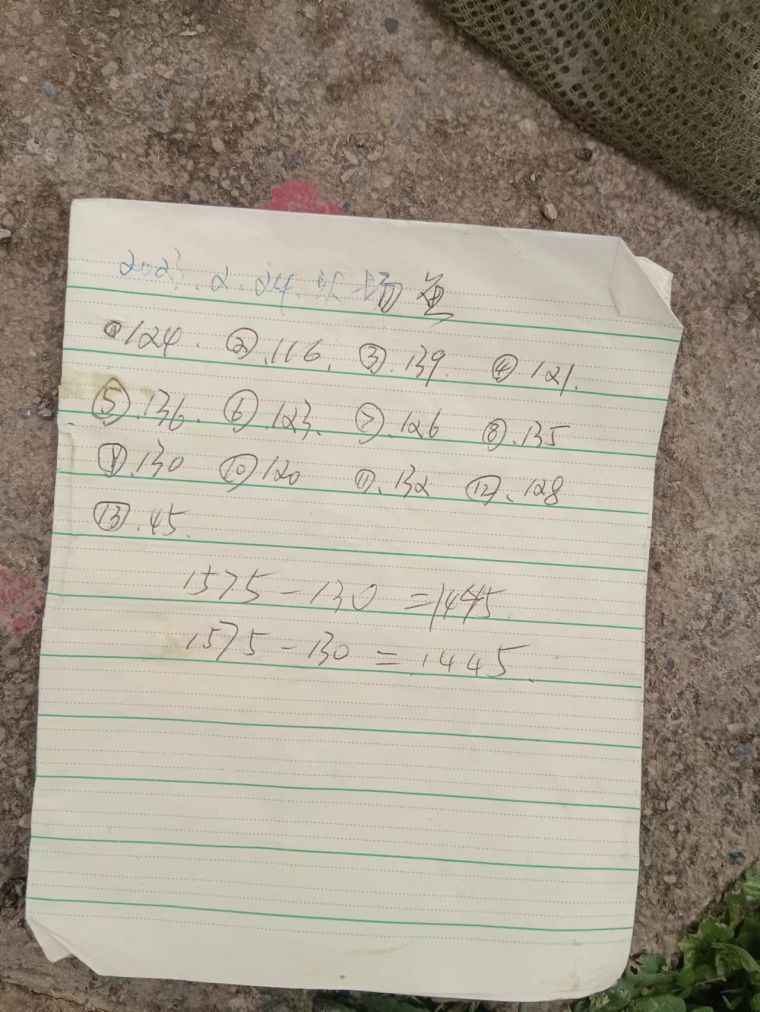 2023.2.24. 场 鱼
①124. ②.116. ③.139. ④.121.
⑤.136. ⑥.123. ⑦.126 ⑧.135
⑨.130 ⑩120 ⑪.132 ⑫.128
⑬.45.
1575-130=1445.
1575-130=1445.